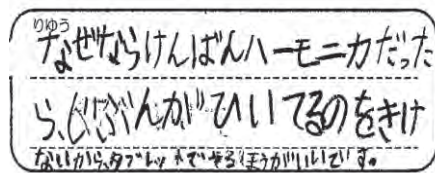 りゆう
なぜならけんばんハーモニカだった
ら、じぶんがひいてるのをきけ
ないから、タブレットでやるほうがいいです。